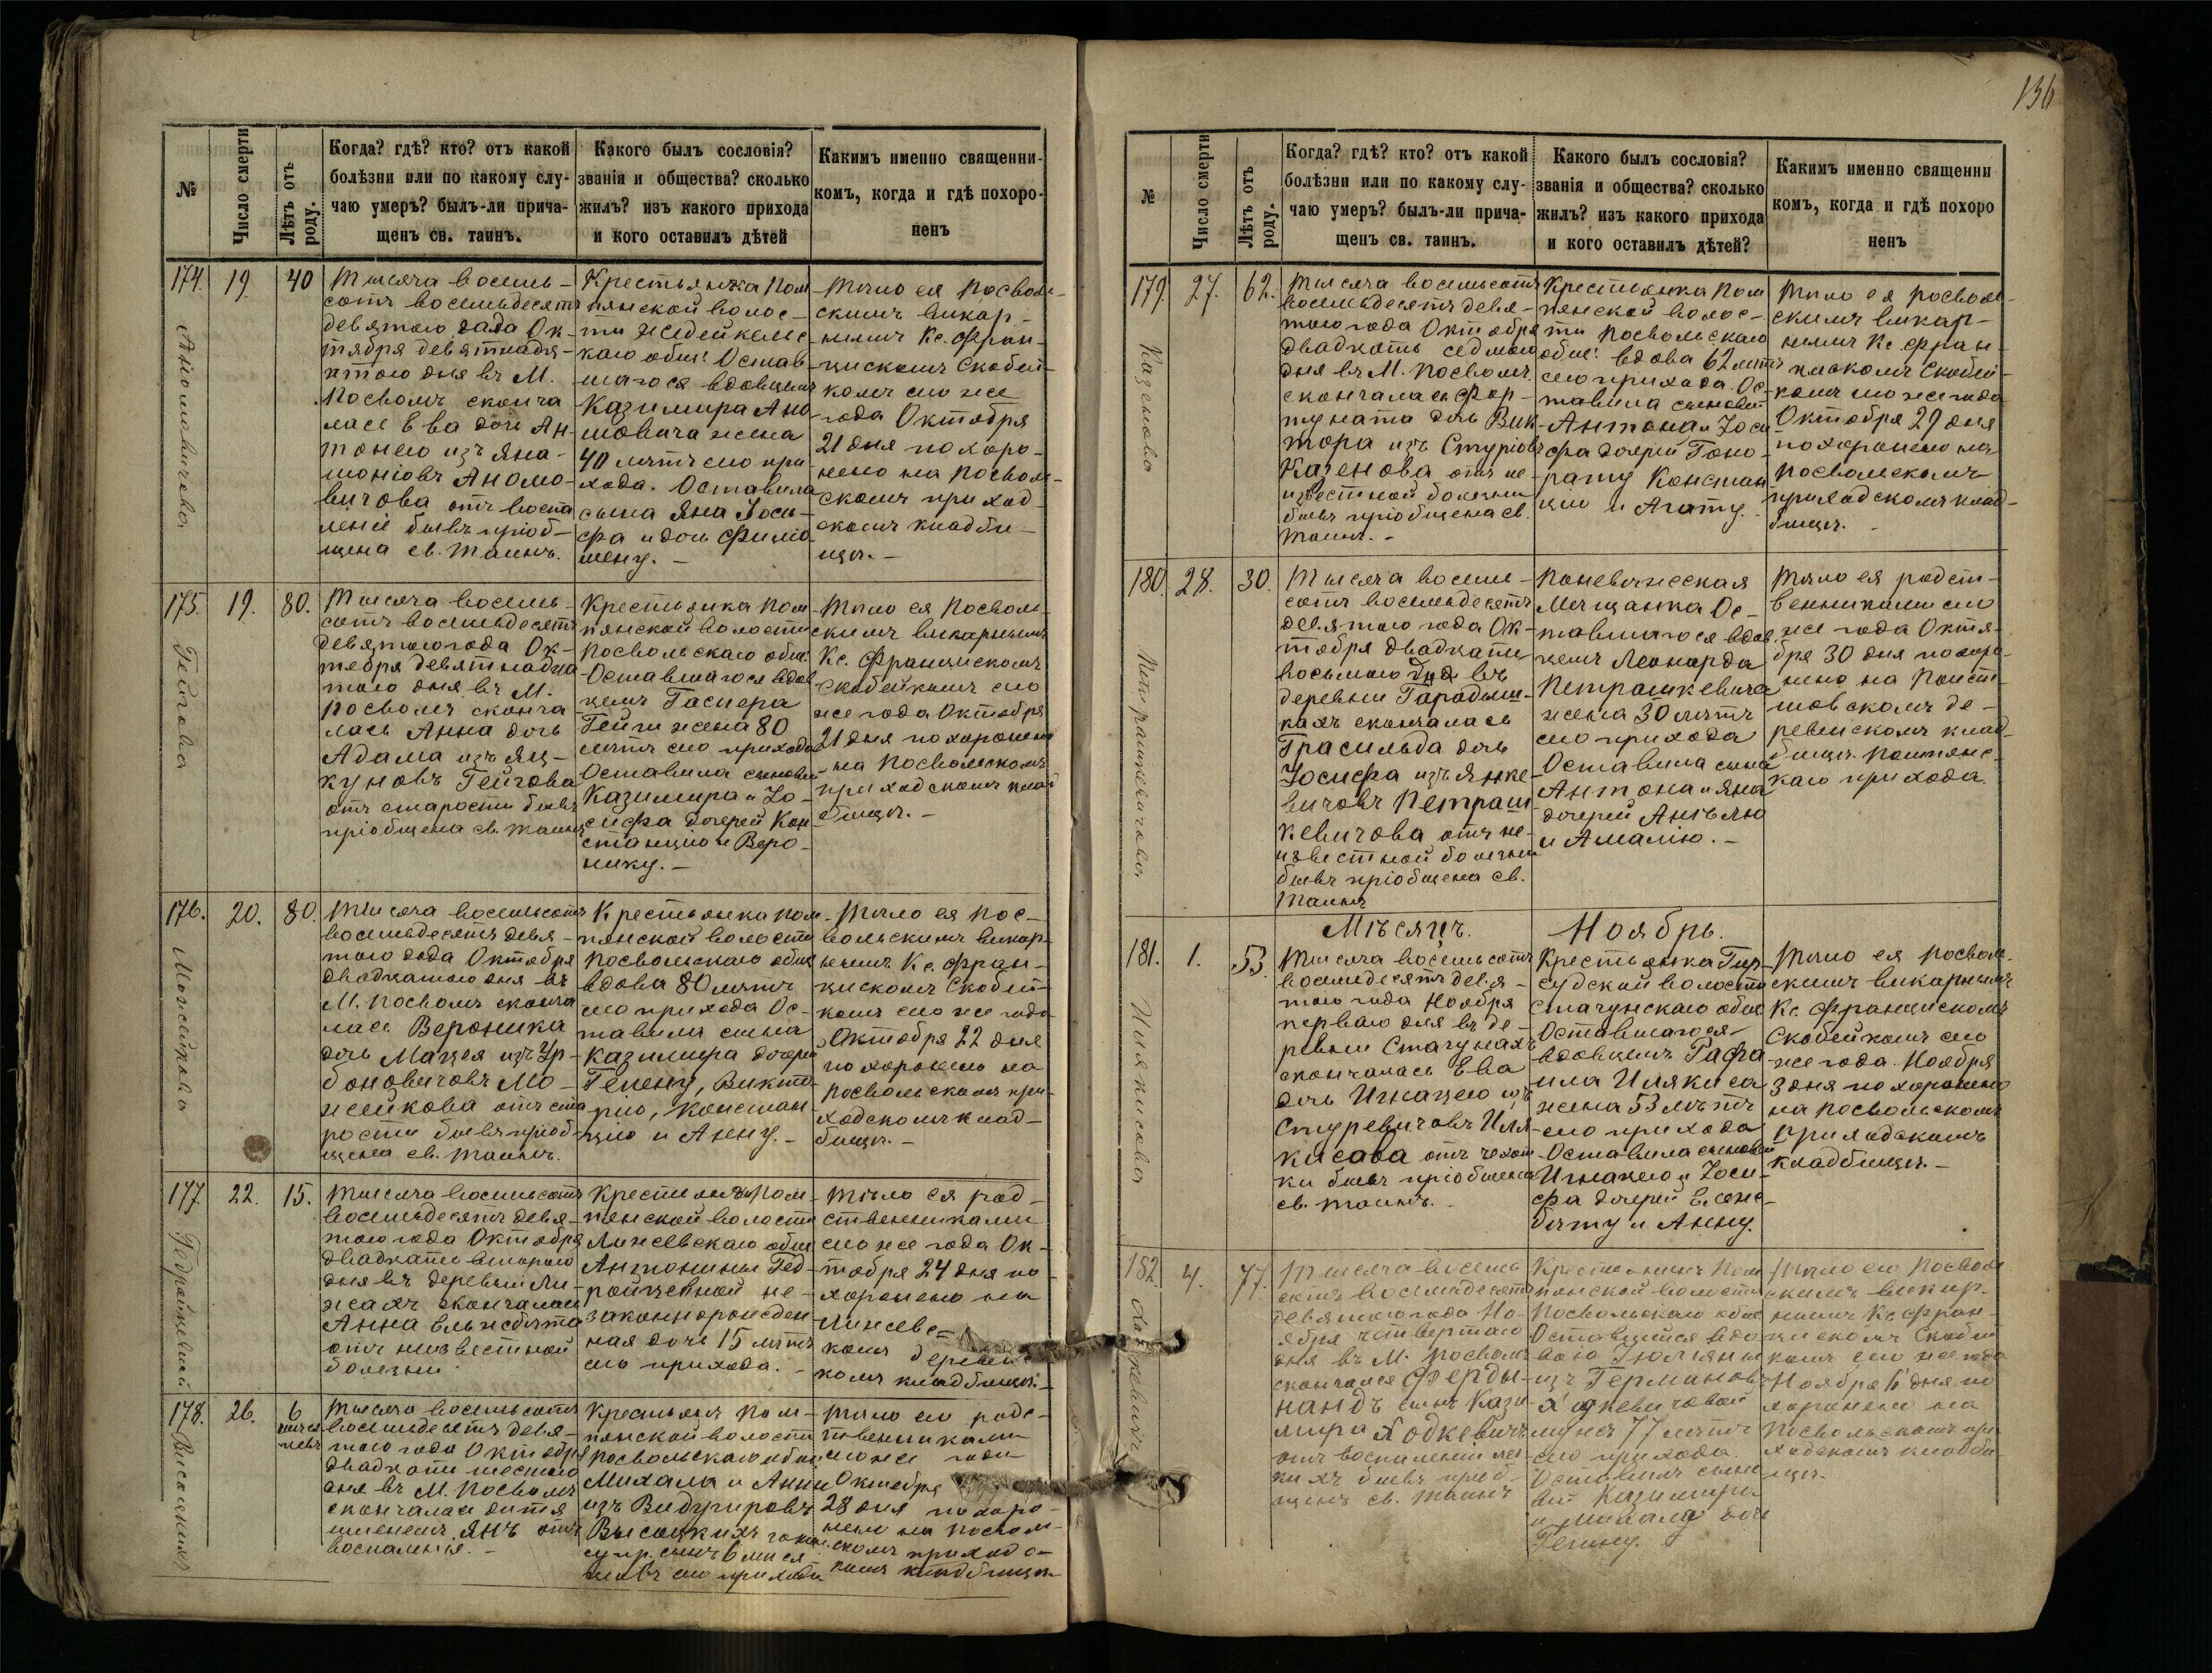 136
№
Число смерти
Лѣтъ отъ роду.
Когда? гдѣ? кто? отъ какой
болѣзни или по какому слу-
чаю умеръ? былъ-ли прича-
щенъ св. таинъ.
Какого былъ сословія?
званія и общества? сколько
жилъ? изъ какого прихода
и кого оставилъ дѣтей
Какимъ именно священни-
комъ, когда и гдѣ похоро-
ненъ
174.
19.
40
Тысяча восемь-
сотъ восемьдесятъ
девятого года Ок-
тября девятнадца-
того дня въ М.
Посволь сконча
лась Ева дочь Ан-
тонего изъ
отъ воспа
ленія бывъ пріоб-
щена св. Таинъ.
Крестьянка Пом
пянской волос-
ти
каго общ. Остав
шагося вдовцемъ
Казимира
жена
40 лѣтъ сего при
хода. Оставила
сына Яна Іоси-
фа и дочь Фило
мену. -
Тѣло ея Посволь-
скимъ викар-
нымъ Кс. Фран-
цискомъ Скобей-
комъ сего же
года Октября
21 дня похоро-
нено на Посволь-
скомъ приход-
скомъ кладби-
щѣ. -
175.
Гейгова
19.
80.
Тысяча восемь-
сотъ восемьдесятъ
девятого года Ок-
тября девятнадца
того дня въ М.
Посволь сконча
лась Анна дочь
Адама изъ Яц-
куновъ Гейгова
отъ старости бывъ
пріобщена св. Таинъ
Крестьянка Пом-
пянской волости
Посвольскаго общ.
Оставшагося вдов
цемъ Гаспера
Гейги жена 80
лѣтъ сего прихода
Оставила сыновей
Казимира и Іо-
сифа дочерей Кон
станцію и Веро-
нику. -
Тѣло ея Посволь-
скимъ викарнымъ
Кс. Францискомъ
Скобейкомъ сего
же года Октября
21 дня похоронено
на Посвольскомъ
приходскомъ клад
бищѣ. -
176.
Можейкова
20.
80.
Тысяча восемьсотъ
восемьдесятъ девя-
того года Октября
двадцатого дня въ
М. Посволь сконча
лась Вероника
дочь Мацея изъ Ур-
боновичовъ Мо-
жейкова отъ ста
рости бывъ пріоб-
щена св. Таинъ.
Крестьянка Пом-
пянской волости
Посвольскаго общ
вдова 80 лѣтъ
сего прихода Ос-
тавила сына
Казимира дочери
Гелену, Викто-
рію, Констан-
цію и Анну. -
Тѣло ея Пос-
вольскимъ викар-
нымъ Кс. Фран-
цискомъ Скобей-
комъ сего же года
Октября 22 дня
похоронено на
Посвольскомъ при-
ходскомъ клад-
бищѣ. -
177
22.
15.
Тысяча восемьсотъ
восемьдесятъ девя-
того года Октября
двадцати второго
дня въ деревни Ли-
жахъ скончалась
Анна Ельжбѣта
отъ неизвестной
болезни
Крестьянки Пом-
пянской волости
общ
Антонины Гед-
ройцевной не-
законнорожден
ная дочь 15 лѣтъ
сего прихода. -
Тѣло ея род-
ственниками
сего же года Ок-
тября 24 дня по
хоронено на
комъ деревен
комъ кладбищѣ. -
178.
26.
6
мѣся
цевъ
Тысяча восемьсотъ
восемьдесятъ девя-
того года Октября
двадцати шестого
дня въ М. Посволь
скончалась дитя
именемъ Янъ отъ
воспаленія. -
Крестьянъ Пом-
пянской волости
Посвольскаго общ
Михала и Анны
изъ
Высоцкихъ закон.
супр. сынъ 6 мѣся-
цевъ сего прихода
Тѣло его родс-
твенниками
сего же года
Октября
28 дня похоро-
нено на Посволь-
скомъ приходс-
комъ кладбищѣ
№
Число смерти
Лѣтъ отъ роду.
Когда? гдѣ? кто? отъ какой
болѣзни или по какому слу-
чаю умеръ? былъ-ли прича-
щенъ св. таинъ.
Какого былъ сословія?
званія и общества? сколько
жилъ? изъ какого прихода
и кого оставилъ дѣтей?
Какимъ именно священни
комъ, когда и гдѣ похоро
ненъ
179.
Казенова
27.
62.
Тысяча восемьсотъ
восемьдесятъ девя-
того года Октября
двадцать седмого
дня въ М. Посволь
скончалась Фор-
туната дочь Вик-
тора изъ
Казенова отъ не-
извѣстной болезни
бывъ пріобщена св.
Таинъ. -
Крестьянка Пом
пянской волос-
ти Посвольскаго
общ. вдова 62 лѣтъ
сего прихода. Ос-
тавила сыновей
Антона и Іоси
фа дочерей Гоно-
рату Констан
цію и Агату. -
Тѣло ея Посволь-
скимъ викар-
нымъ Кс. Фран-
цискомъ Скобей-
комъ сего же года
Октября 29 дня
похоронено на
Посвольскомъ
приходскомъ клад-
бищѣ. -
180.
Петрашкевичова
28.
30.
Тысяча восемь-
сотъ восемьдесятъ
девятого года Ок-
тября двадцати
восьмого дня въ
деревни
скончалась
Грасильда дочь
Іосифа изъ Янке-
вичовъ Петраш
кевичова отъ не-
извѣстной болезни
бывъ пріобщена св.
Таинъ
Поневѣжеская
Мѣщанка Ос-
тавшагося вдов
цемъ Леонарда
Петрашкевича
жена 30 лѣтъ
сего прихода
Оставила сына
Антона и Яна
дочерей Ангѣлю
и Амалію. -
Тѣло ея родст-
венниками сего
же года Октя-
бря 30 дня похоро
нено на
скомъ де-
ревнскомъ клад
бищѣ.
каго прихода
Мѣсяцъ. Ноябрь.
181.
Илякисова
1.
53.
Тысяча восемьсотъ
восемьдесятъ девя-
того года Ноября
перваго дня въ де-
ревни Стачунахъ
скончалась Ева
дочь Игнацего изъ
Стуревичовъ Иля-
кисова отъ чехот
ки бывъ пріобщена
св. Таинъ.
Крестьянка
волости
Стачунскаго общ
Оставшагося
вдовцемъ Рафа
ила Илякиса
жена 53 лѣтъ
сего прихода
Оставила сыновей
Игнацего и Іоси-
фа дочерей Ельж-
бѣту и Анну.
Тѣло ея Посволь-
скимъ викарнымъ
Кс. Францискомъ
Скобейкомъ сего
же года Ноября
3 дня похоронено
на Посвольскомъ
приходскомъ
кладбищѣ. -
182.
4.
77.
Тысяча восемь
сотъ восемьдесятъ
девятого года Но-
ября четвертаго
дня въ М. Посволь
скончался Ферды-
нандъ сынъ Кази
мира Ходкевичъ
отъ воспаленій лег
кихъ бывъ пріоб-
щенъ св. Таинъ
Крестьянинъ Пом
пянской волости
Посвольскаго общ
Оставшейся вдо
вою Юліяны
изъ Германовъ
Ходкевичовой
мужъ 77 лѣтъ
сего прихода
Оставилъ сыно
вей Казимира
и Михала дочь
Гелену.
Тѣло его Посволь
скимъ викар-
нымъ Кс. Фран-
цискомъ Скобей
комъ сего же года
Ноября 6 дня по
хоронено на
Посвольскомъ при
ходскомъ кладби-
щѣ. -